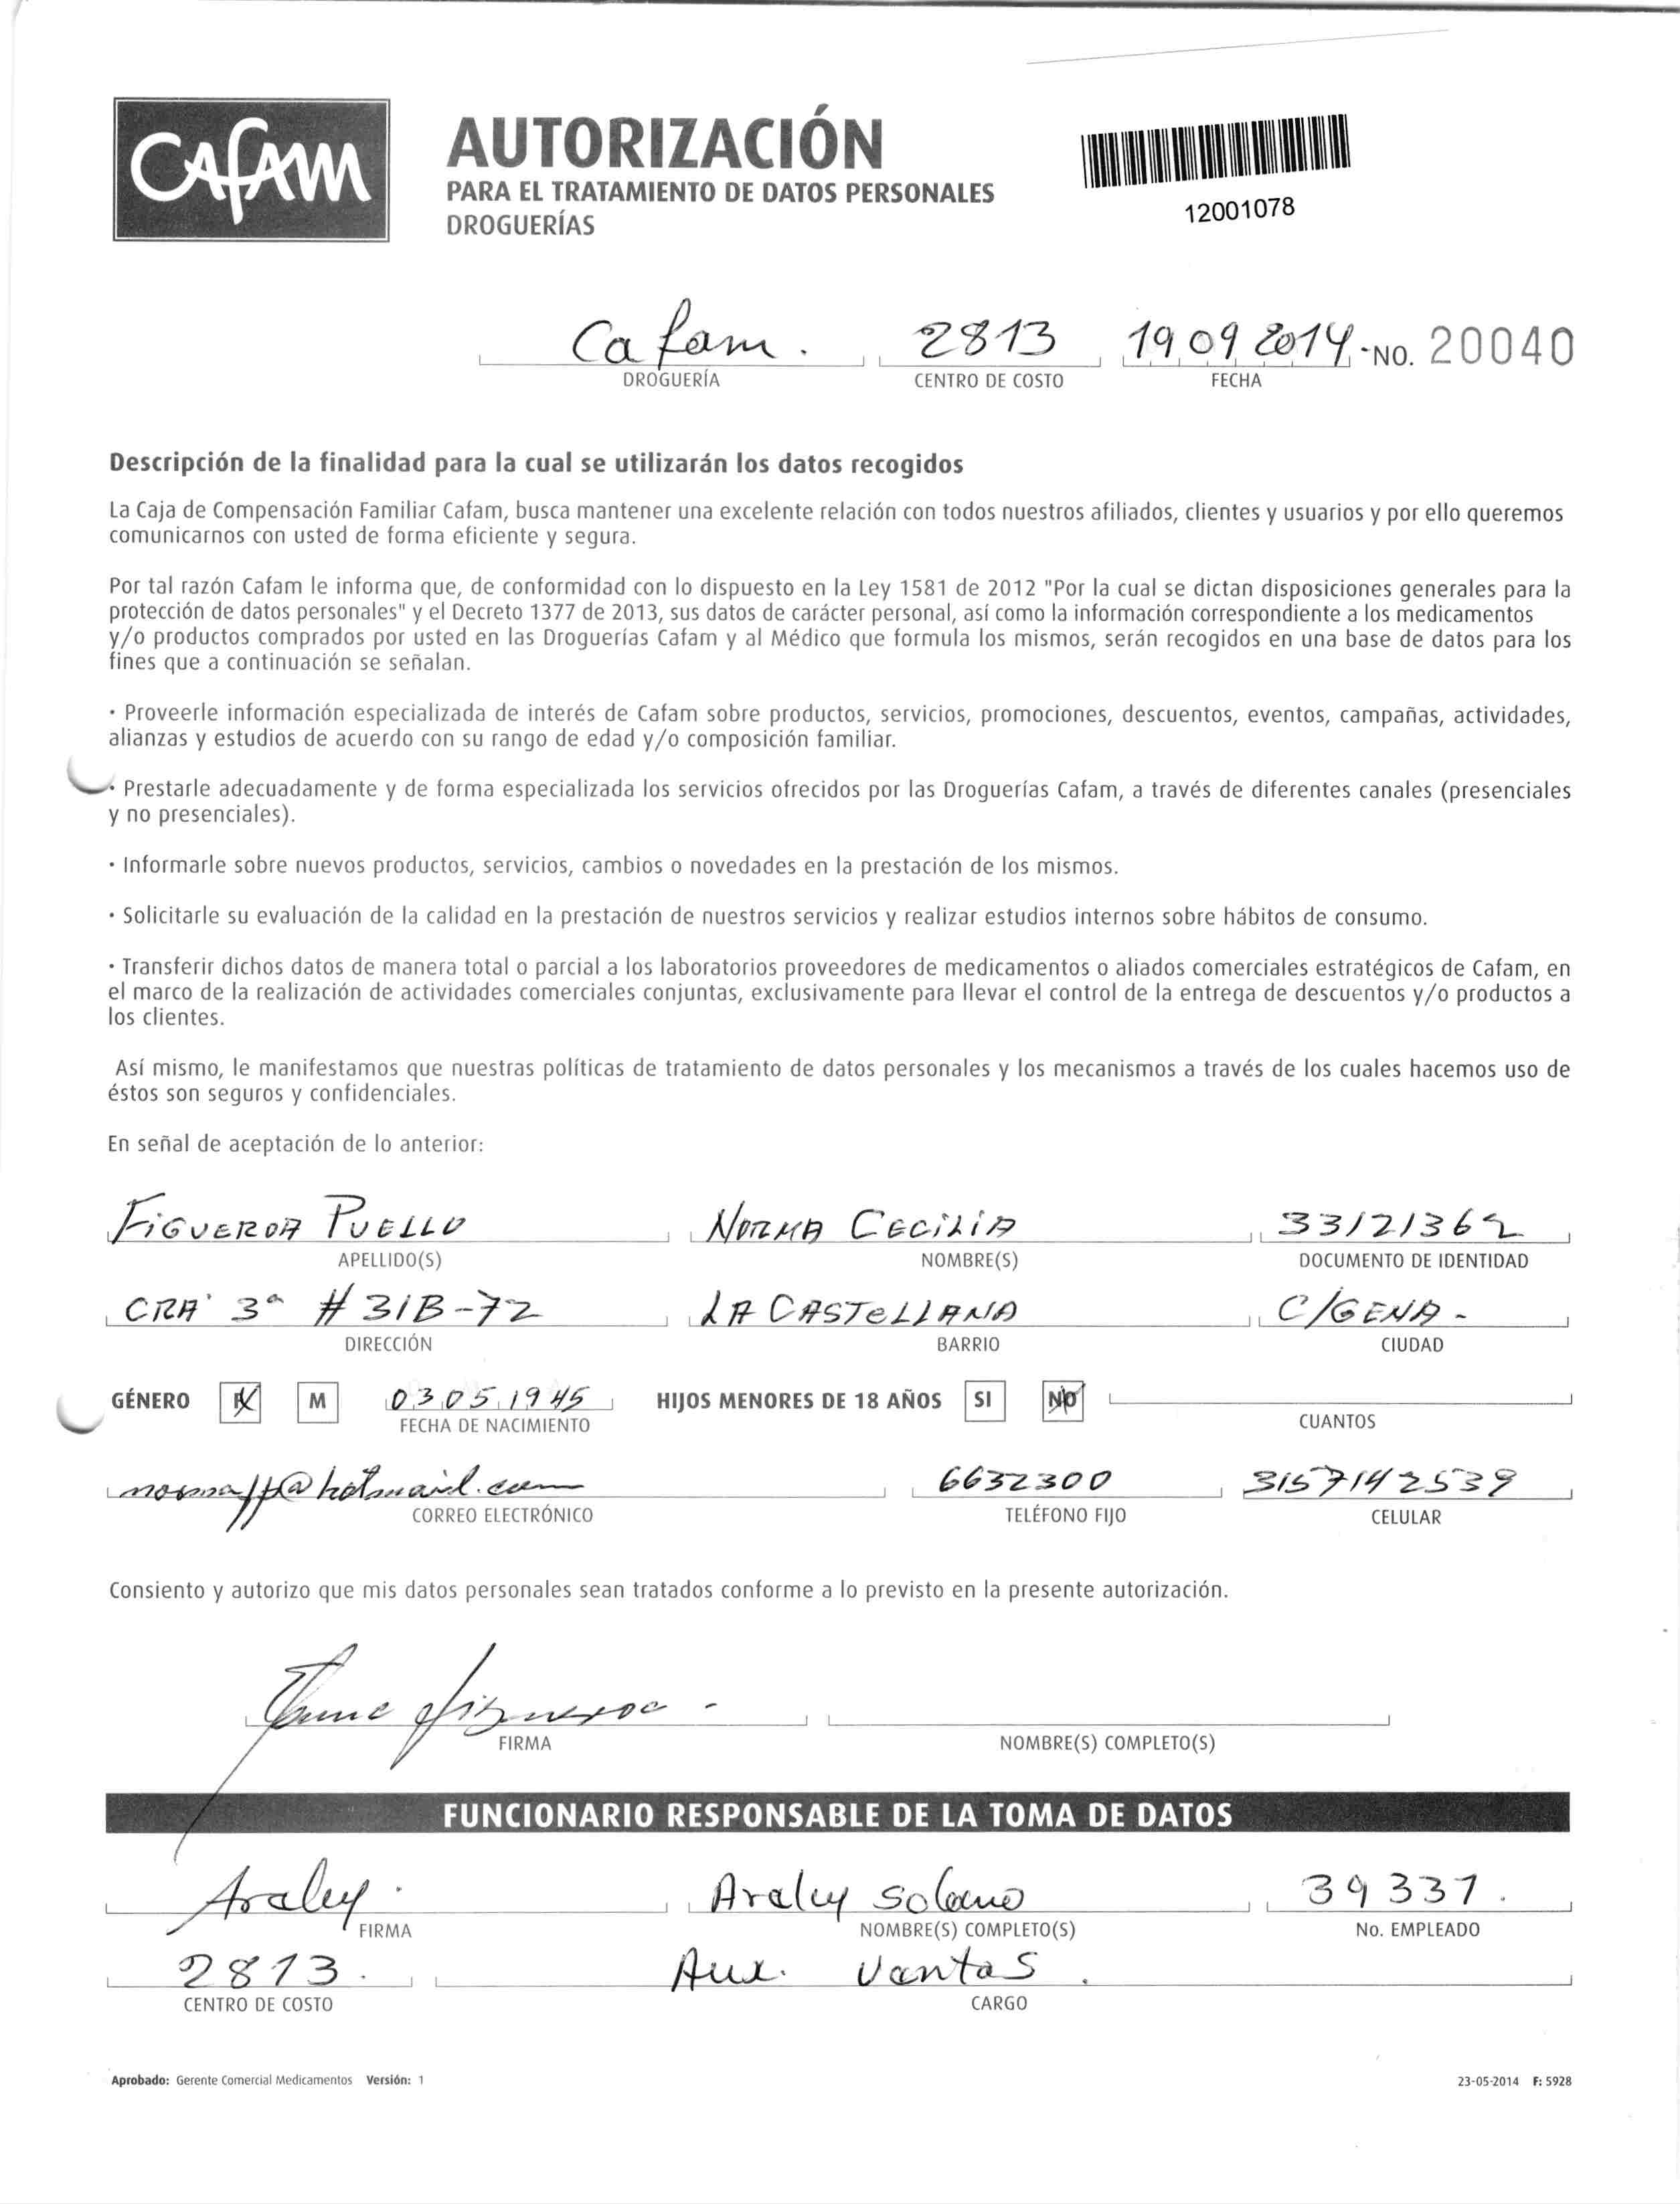 Cafam
AUTORIZACIÓN
PARA EL TRATAMIENTO DE DATOS PERSONALES
DROGUERÍAS
12001078
Cafam. 2813 19 09 2014 - No. 20040
DROGUERÍA CENTRO DE COSTO FECHA
Descripción de la finalidad para la cual se utilizarán los datos recogidos
La Caja de Compensación Familiar Cafam, busca mantener una excelente relación con todos nuestros afiliados, clientes y usuarios y por ello queremos
comunicarnos con usted de forma eficiente y segura.
Por tal razón Cafam le informa que, de conformidad con lo dispuesto en la Ley 1581 de 2012 "Por la cual se dictan disposiciones generales para la
protección de datos personales" y el Decreto 1377 de 2013, sus datos de carácter personal, así como la información correspondiente a los medicamentos
y/o productos comprados por usted en las Droguerías Cafam y al Médico que formula los mismos, serán recogidos en una base de datos para los
fines que a continuación se señalan.
· Proveerle información especializada de interés de Cafam sobre productos, servicios, promociones, descuentos, eventos, campañas, actividades,
alianzas y estudios de acuerdo con su rango de edad y/o composición familiar.
· Prestarle adecuadamente y de forma especializada los servicios ofrecidos por las Droguerías Cafam, a través de diferentes canales (presenciales
y no presenciales).
· Informarle sobre nuevos productos, servicios, cambios o novedades en la prestación de los mismos.
· Solicitarle su evaluación de la calidad en la prestación de nuestros servicios y realizar estudios internos sobre hábitos de consumo.
· Transferir dichos datos de manera total o parcial a los laboratorios proveedores de medicamentos o aliados comerciales estratégicos de Cafam, en
el marco de la realización de actividades comerciales conjuntas, exclusivamente para llevar el control de la entrega de descuentos y/o productos a
los clientes.
Así mismo, le manifestamos que nuestras políticas de tratamiento de datos personales y los mecanismos a través de los cuales hacemos uso de
éstos son seguros y confidenciales.
En señal de aceptación de lo anterior:
FIGUEROA PUELLO NORMA CECILIA 33121362
APELLIDO(S) NOMBRE(S) DOCUMENTO DE IDENTIDAD
CRA 3ª # 31B-72 LA CASTELLANA C/GENA -
DIRECCIÓN BARRIO CIUDAD
GÉNERO F M 03 05 1945 HIJOS MENORES DE 18 AÑOS SI NO
FECHA DE NACIMIENTO CUANTOS
@hotmail.com 6632300 3157142539
CORREO ELECTRÓNICO TELÉFONO FIJO CELULAR
Consiento y autorizo que mis datos personales sean tratados conforme a lo previsto en la presente autorización.
Figueroa -
FIRMA NOMBRE(S) COMPLETO(S)
FUNCIONARIO RESPONSABLE DE LA TOMA DE DATOS
Araley. Araley Solano 39337.
FIRMA NOMBRE(S) COMPLETO(S) No. EMPLEADO
2813. Aux. Ventas.
CENTRO DE COSTO CARGO
Aprobado: Gerente Comercial Medicamentos Versión: 1 23-05-2014 F: 5928